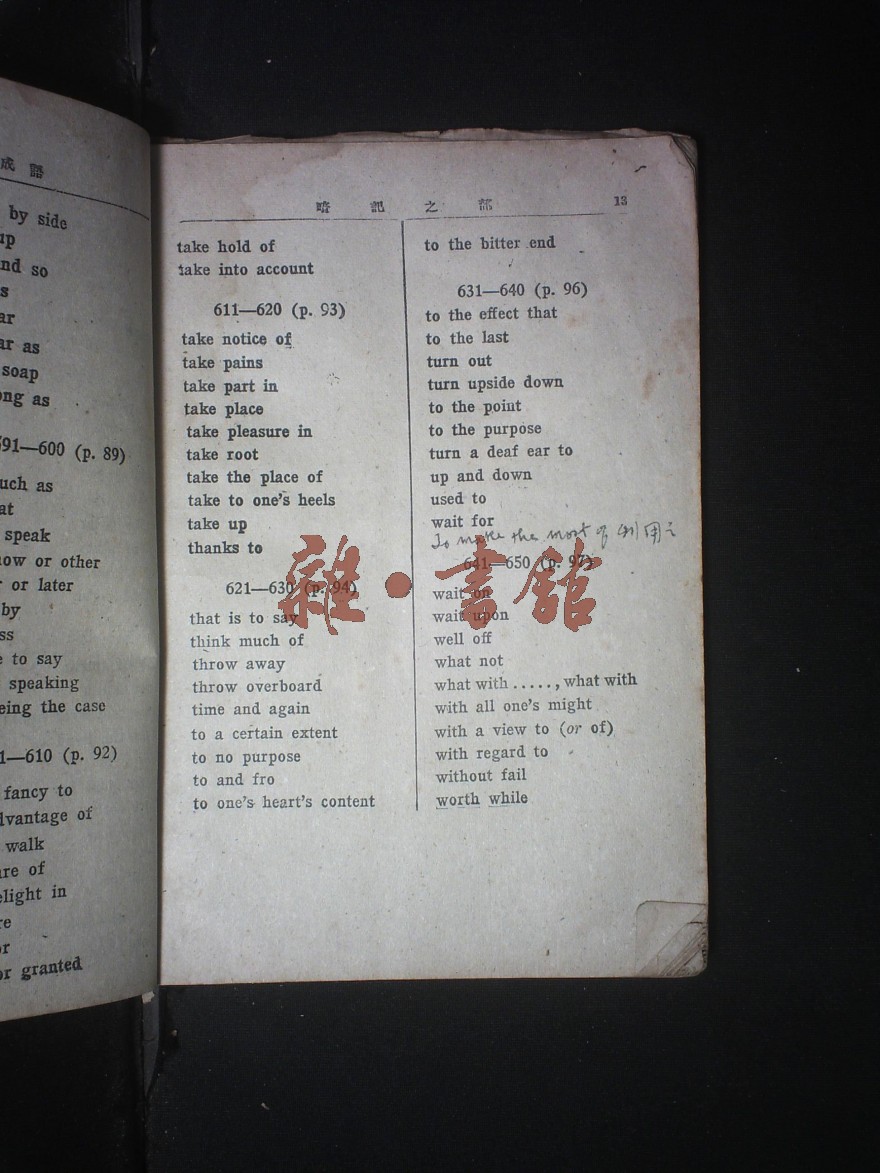 成語
by side
up
nd so
s
ar
ar as
soap
ong as
591—600 (p. 89)
uch as
at
speak
now or other
r or later
by
ss
e to say
speaking
eing the case
1—610 (p. 92)
fancy to
dvantage of
walk
are of
elight in
re
or
or granted
暗記之部 13
take hold of
take into account
611—620 (p. 93)
take notice of
take pains
take part in
take place
take pleasure in
take root
take the place of
take to one's heels
take up
thanks to
621—630 (p. 94)
that is to say
think much of
throw away
throw overboard
time and again
to a certain extent
to no purpose
to and fro
to one's heart's content
to the bitter end
631—640 (p. 96)
to the effect that
to the last
turn out
turn upside down
to the point
to the purpose
turn a deaf ear to
up and down
used to
wait for
To make the most of 利用之
641—650 (p. 97)
wait on
wait upon
well off
what not
what with ....., what with
with all one's might
with a view to (or of)
with regard to
without fail
worth while
雜·書館